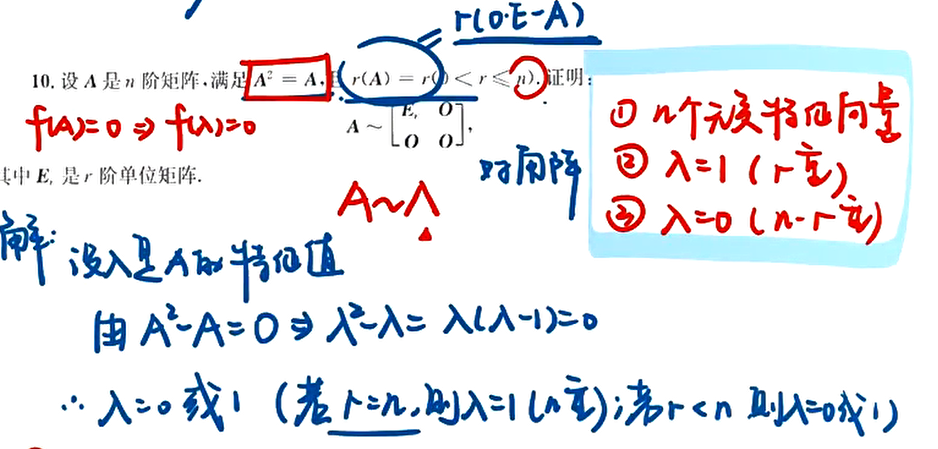 r(0·E-A)
10. 设 A 是 n 阶矩阵,满足 A² = A, r(A) = r( < r ≤ n). 证明:
f(A)=0 ⇒ f(λ)=0
A ~ [E_r O
O O],
其中 E_r 是 r 阶单位矩阵.
对角阵
A~Λ
① n个无关特征向量
② λ=1 (r重)
③ λ=0 (n-r重)
解: 设λ是A的特征值
由 A²-A=0 ⇒ λ²-λ= λ(λ-1)=0
∴ λ=0 或 1 (若 r=n, 则λ=1 (n重); 若 r<n 则λ=0或1)